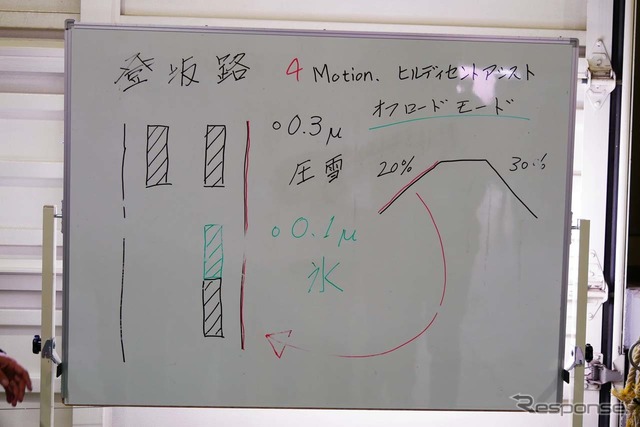 登坂路 4 Motion. ヒルディセントアシスト
オフロードモード
0.3μ
圧雪
20% 30%
0.1μ
氷
Response.